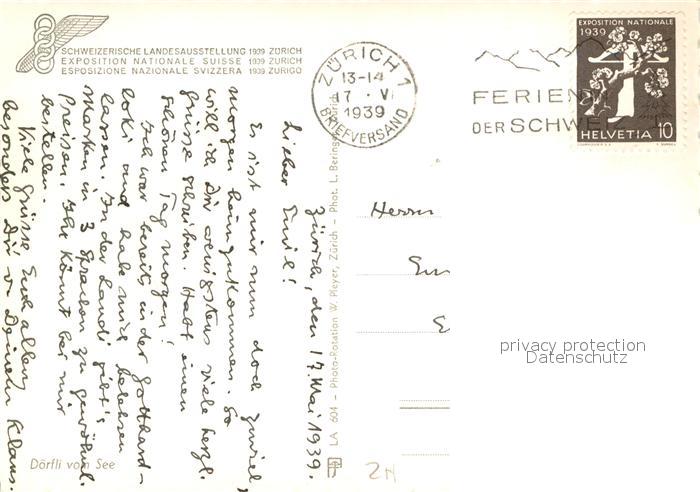 SCHWEIZERISCHE LANDESAUSSTELLUNG 1939 ZÜRICH
EXPOSITION NATIONALE SUISSE 1939 ZURICH
ESPOSIZIONE NAZIONALE SVIZZERA 1939 ZURIGO
ZÜRICH 1
13-14
17 · V
1939
BRIEFVERSAND
FERIEN
DER SCHWEI
EXPOSITION NATIONALE
1939
HELVETIA 10
Zürich, den 17. Mai 1939.
Lieber Emil!
Es ist mir nun doch zuviel,
morgen heimzukommen. So
will ich Dir wenigstens viele herzl.
Grüsse schreiben. Habt einen
schönen Tag morgen!
Ich war bereits in der Gotthard-
loki und habe mich belehren
lassen. In der Landi gibt's
Marken in 3 Sprachen zu gewöhnl.
Preisen. Ihr könnt bei mir
bestellen.
Viele Grüsse Euch allen,
besonders Dir v. Deinem Klaus.
LA 604 – Photo-Rotation W. Pleyer, Zürich – Phot. L. Beringer, Zürich
Herrn
Dörfli vom See
ZH
privacy protection
Datenschutz